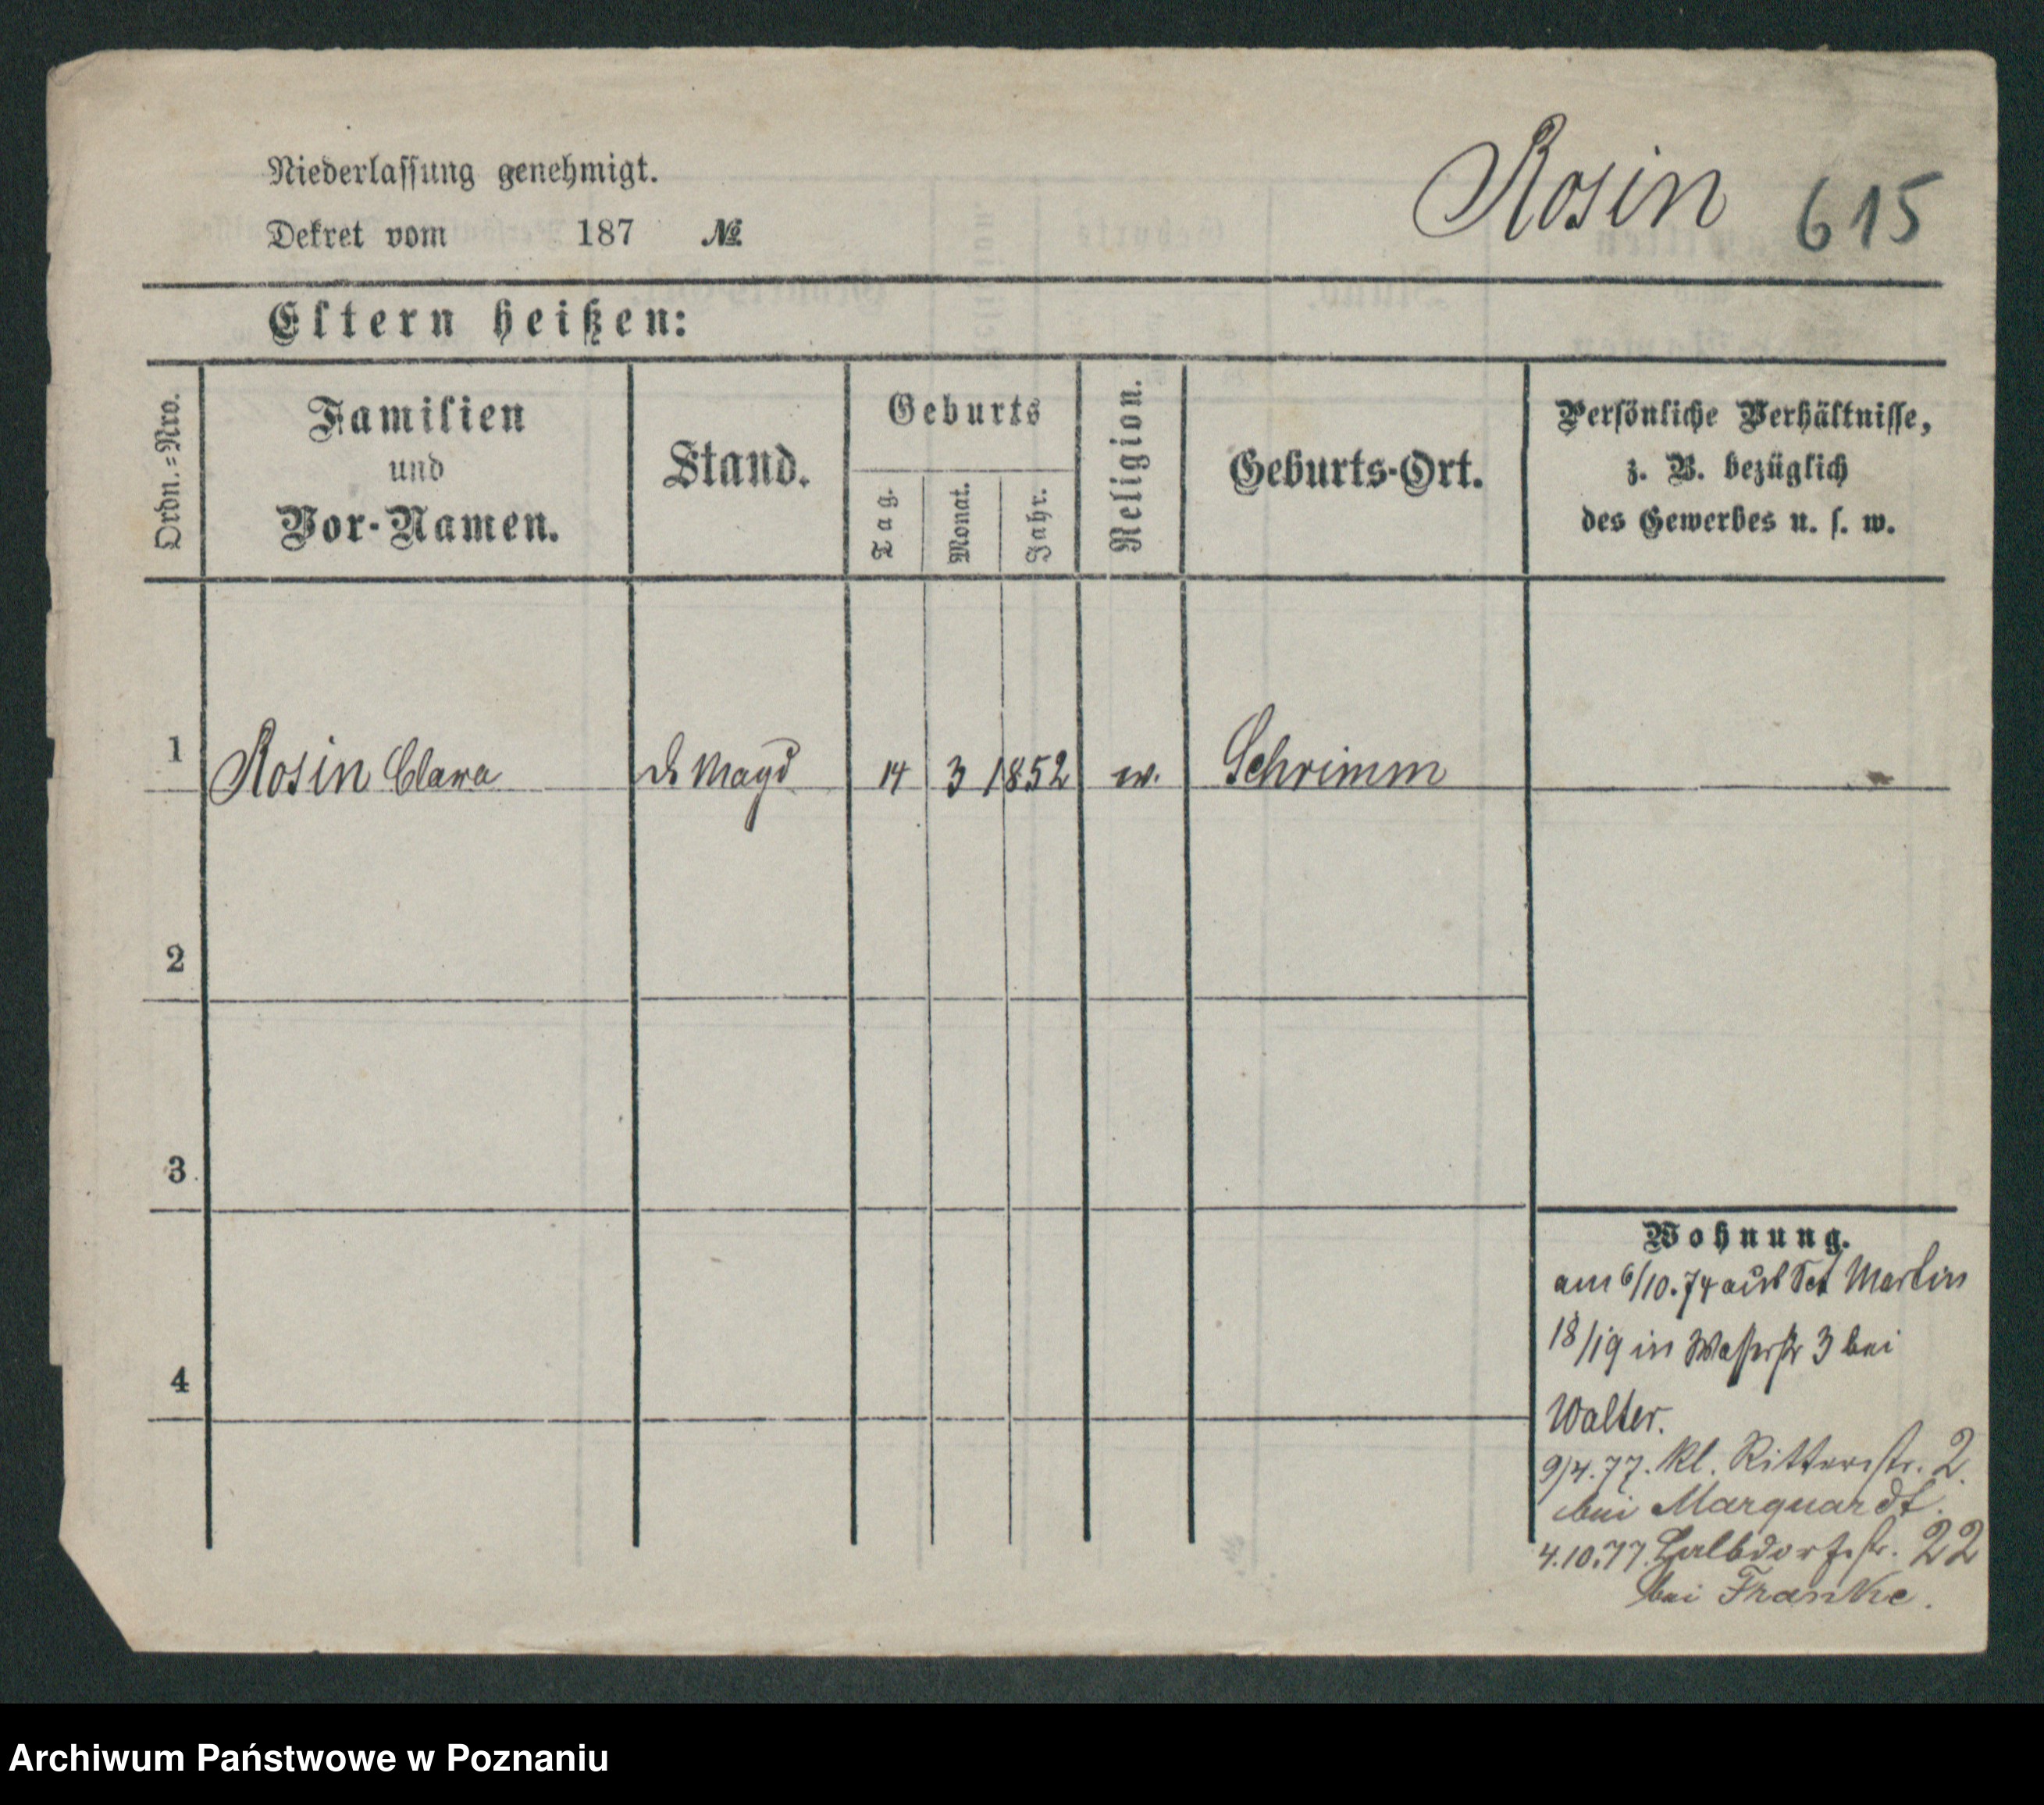 Niederlassung genehmigt.
Dekret vom 187 №
Rosin 615
Eltern heißen:
Ordn.=Nro.
Familien
und
Vor-Namen.
Stand.
Geburts
Tag.
Monat.
Jahr.
Religion.
Geburts-Ort.
Persönliche Verhältnisse,
z. B. bezüglich
des Gewerbes u. s. w.
1 Rosin Clara Magd 14 3 1852 Schrimm
2
3
4
Wohnung.
am 6/10.74 aus Sct Martin
18/19 in Wasserstr 3 bei
Walter.
9/4.77. Kl. Ritterstr. 2.
bei Marquardt.
4.10.77. Halbdorfstr. 22
bei Franke.
Archiwum Państwowe w Poznaniu